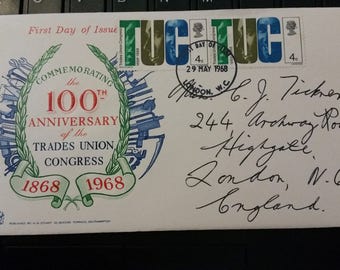 First Day of Issue
COMMEMORATING
the
100TH
ANNIVERSARY
of the
TRADES UNION
CONGRESS
1868 1968
TUC
4d
TUC
4d
FIRST DAY OF ISSUE
29 MAY 1968
LONDON, W.C.
C. J. Tickner
244 Archway Road
Highgate,
London, N.6
England.